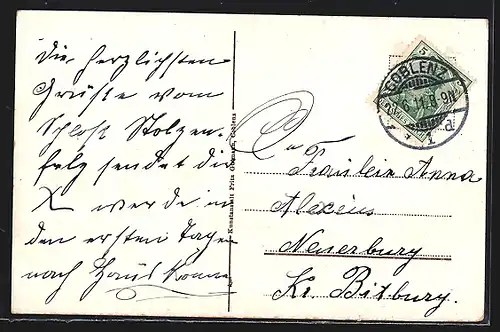 Die herzlichsten
Grüße vom
Schloß Stolzen-
fels sendet dir
X werde in
den ersten Tagen
nach Haus komm
Kunstanstalt Fritz Coblenz
COBLENZ
5
11. 8-9N
Fräulein Anna
Alexius
Neuerburg
Kr. Bitburg.